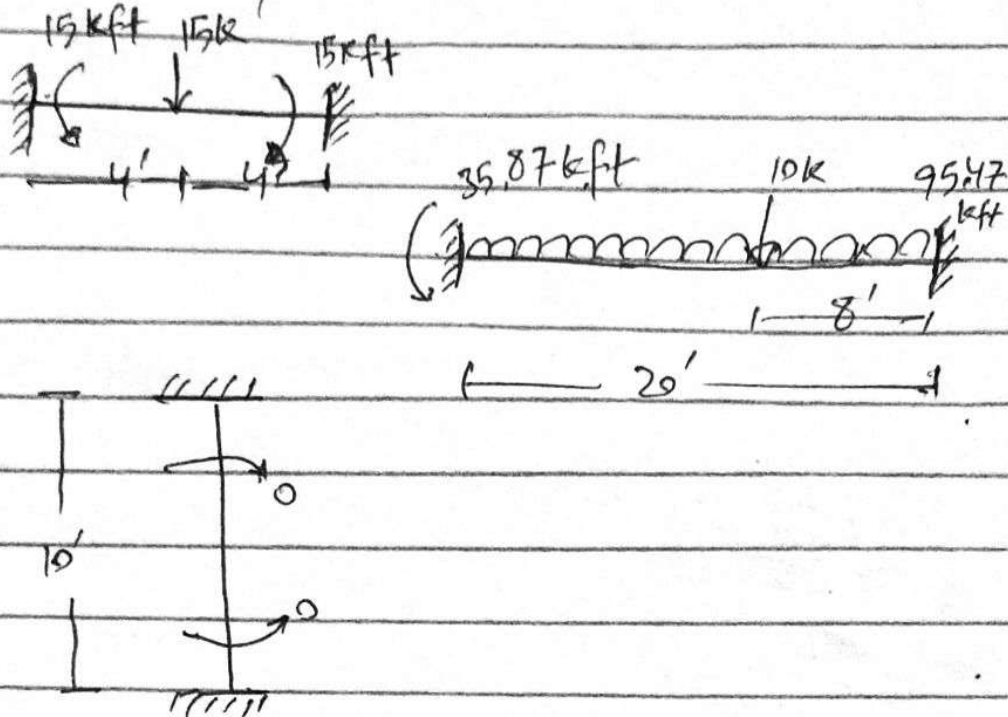 15 kft 15k 15kft
4' 4'
35.87 k.ft 10k 95.47 kft
8'
20'
0
10'
0